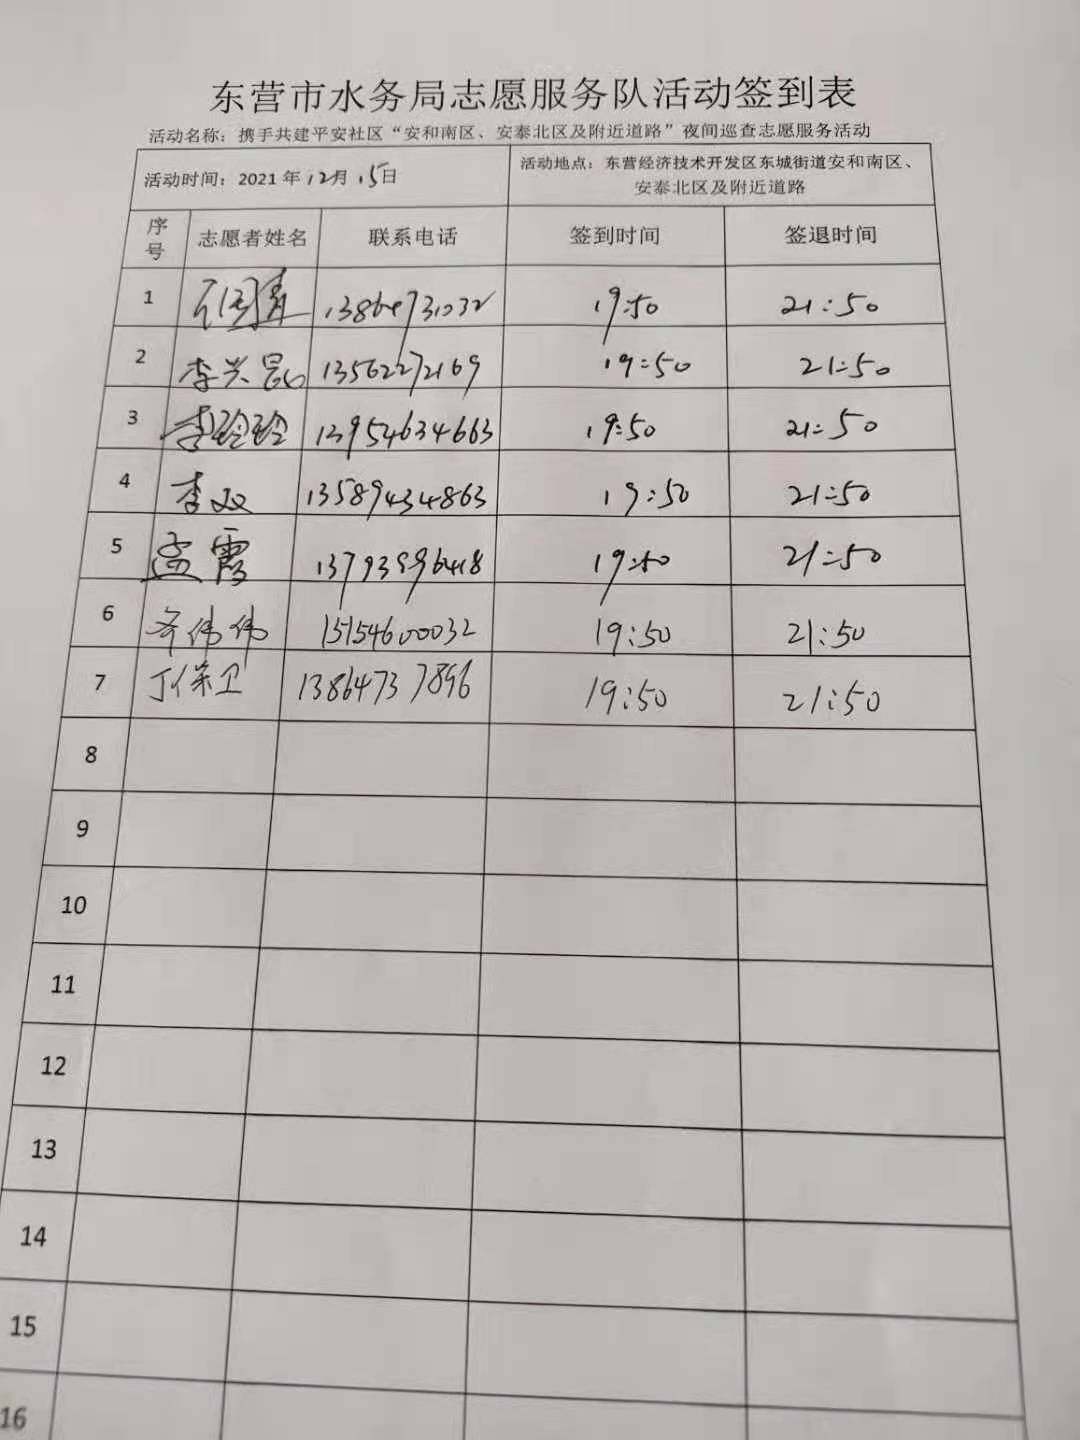 东营市水务局志愿服务队活动签到表
活动名称：携手共建平安社区“安和南区、安泰北区及附近道路”夜间巡查志愿服务活动
活动时间：2021年12月15日 活动地点：东营经济技术开发区东城街道安和南区、
安泰北区及附近道路
序号 志愿者姓名 联系电话 签到时间 签退时间
1 19:50 21:50
2 李兴昆 13562272169 19:50 21:50
3 李玲玲 13954634663 19:50 21:50
4 李双 13589434863 19:50 21:50
5 孟霞 19:50 21:50
6 齐伟伟 15154600032 19:50 21:50
7 丁保卫 13864737896 19:50 21:50
8
9
10
11
12
13
14
15
16